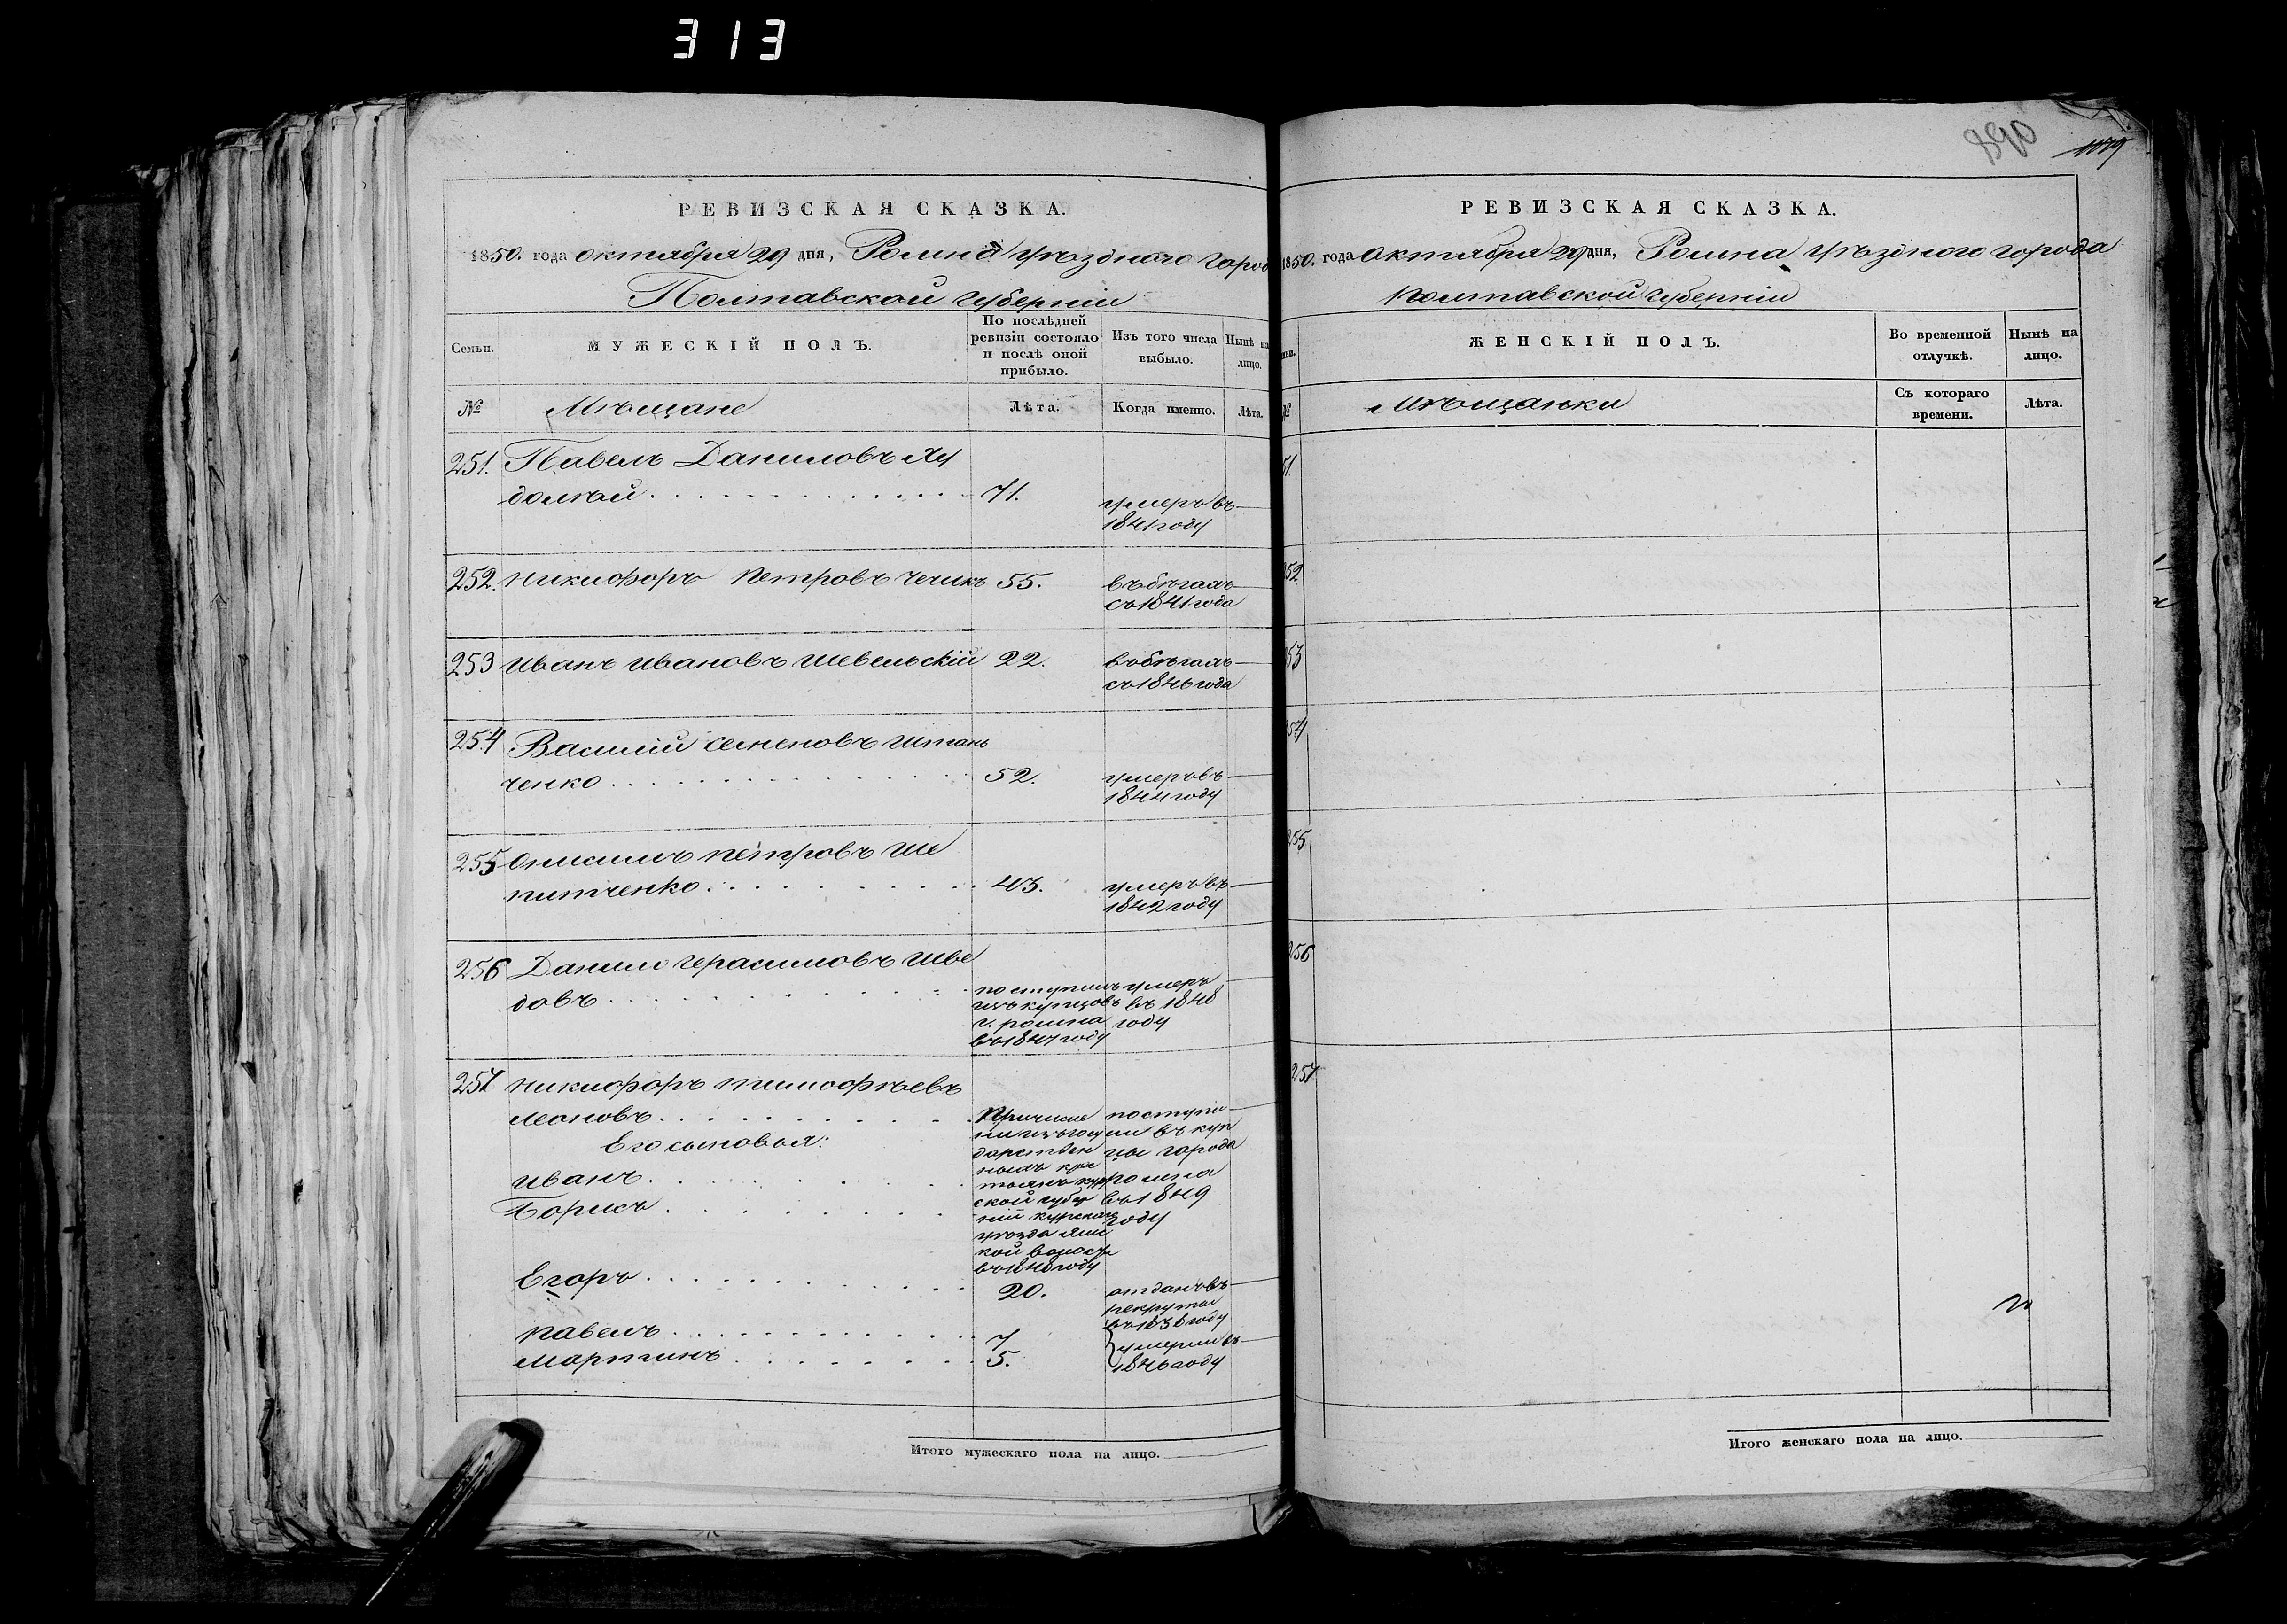 313
890
1079
РЕВИЗСКАЯ СКАЗКА.
1850. года октября 29 дня, Ромна уѣзднаго город
Полтавской губерніи
Семьи.
МУЖЕСКІЙ ПОЛЪ.
По послѣдней ревизіи состояло и послѣ оной прибыло.
Изъ того числа выбыло.
Нынѣ на лицо.
№
Мѣщане
Лѣта.
Когда именно.
Лѣта.
251. Павелъ Даниловъ
71.
умеръ въ
1841 году
252. Никифоръ Петровъ Чечикъ 55.
въ бѣгахъ
съ 1841 года
253 Иванъ Ивановъ Шевельскій 22.
въ бѣгахъ
съ 1846 года
254 Василій Семеновъ Штань
ченко
52.
умеръ въ
1844 году
255 Онисимъ Петровъ Ше
питченко
43.
умеръ въ
1842 году
256 Данило Герасимовъ Шве
довъ
поступилъ
изъ купцовъ
г. Ромна
въ 1847 году
умеръ
въ 1848
году
257 Никифоръ Тимофѣевъ
Леоновъ
Его сыновья:
Иванъ
Борисъ
Причисле
ны изъ госу
дарствен
ныхъ кре
стьянъ кур
ской губер
ніи курскаго
уѣзда
кой волости
въ 1848 году
поступи
ли въ куп
цы города
Ромна
въ 1849
году
Егоръ
20.
отданъ въ
рекруты
въ 1838 году
Павелъ
7
Мартинъ
5.
умерли въ
1846 году
Итого мужескаго пола на лицо.
РЕВИЗСКАЯ СКАЗКА.
1850. года Октября 29 дня, Ромна уѣзднаго города
Полтавской губерніи
ЖЕНСКІЙ ПОЛЪ.
Во временной отлучкѣ.
Нынѣ на лицо.
№
Мѣщанки
Съ котораго времени.
Лѣта.
51.
252
253
254
255
256
257
Итого женскаго пола на лицо.